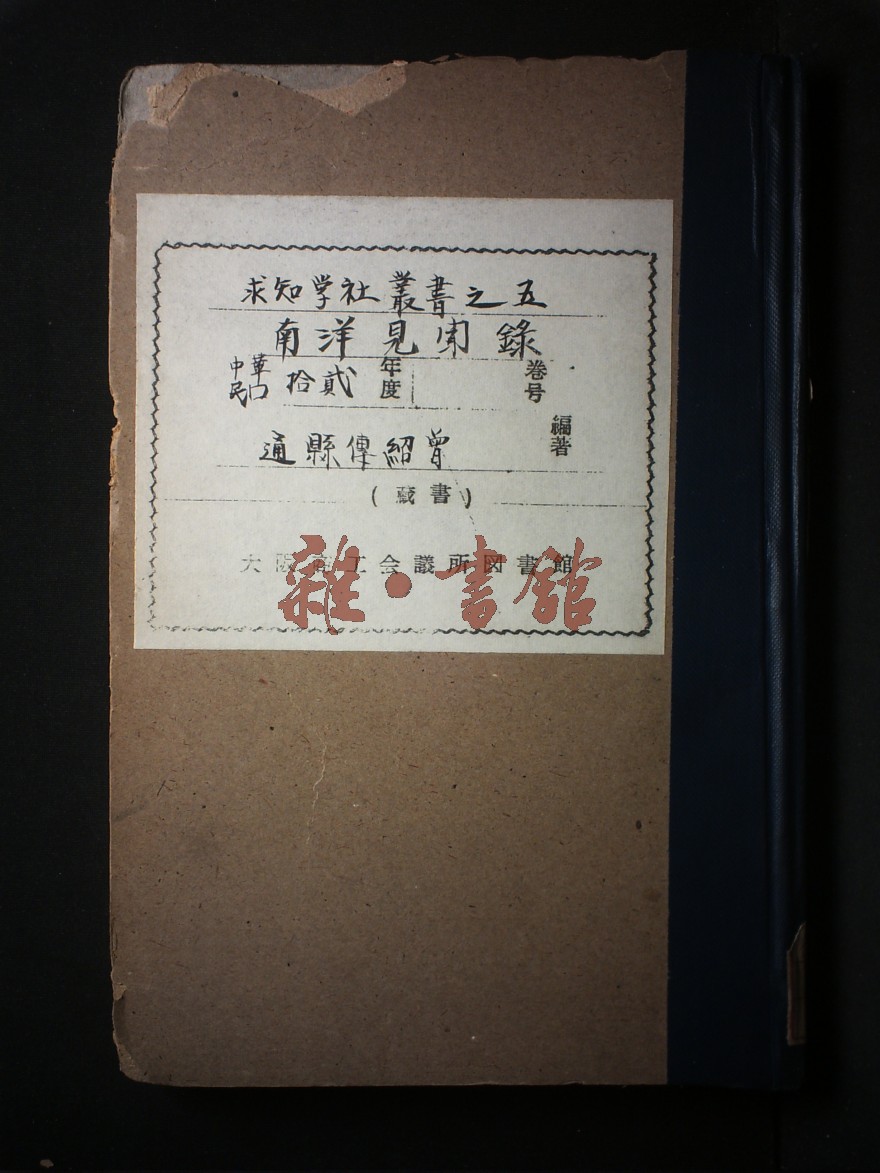 求知学社叢書之五
南洋見闻錄
中華民囗 拾貳 年度 巻号
通縣傅紹曾 編著
(藏書)
大阪商工会議所図書館
雜·書館